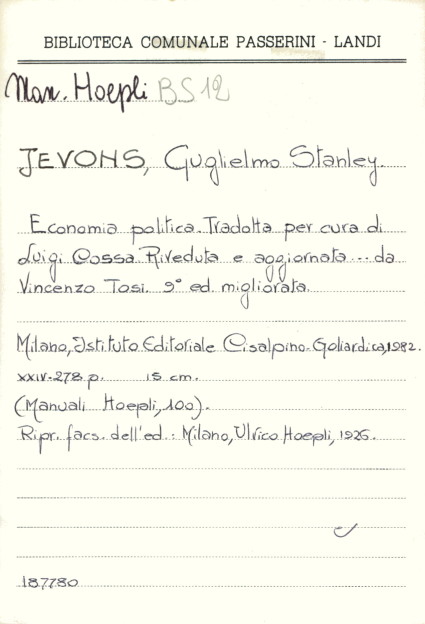 BIBLIOTECA COMUNALE PASSERINI - LANDI
Man. Hoepli BS 12
JEVONS, Guglielmo Stanley.
Economia politica. Tradotta per cura di
Luigi Cossa. Riveduta e aggiornata... da
Vincenzo Tosi. 9° ed. migliorata.
Milano, Istituto Editoriale Cisalpino-Goliardica, 1982.
XXIV-278 p. 15 cm.
(Manuali Hoepli, 100).
Ripr. facs. dell'ed.: Milano, Ulrico Hoepli, 1926.
187780